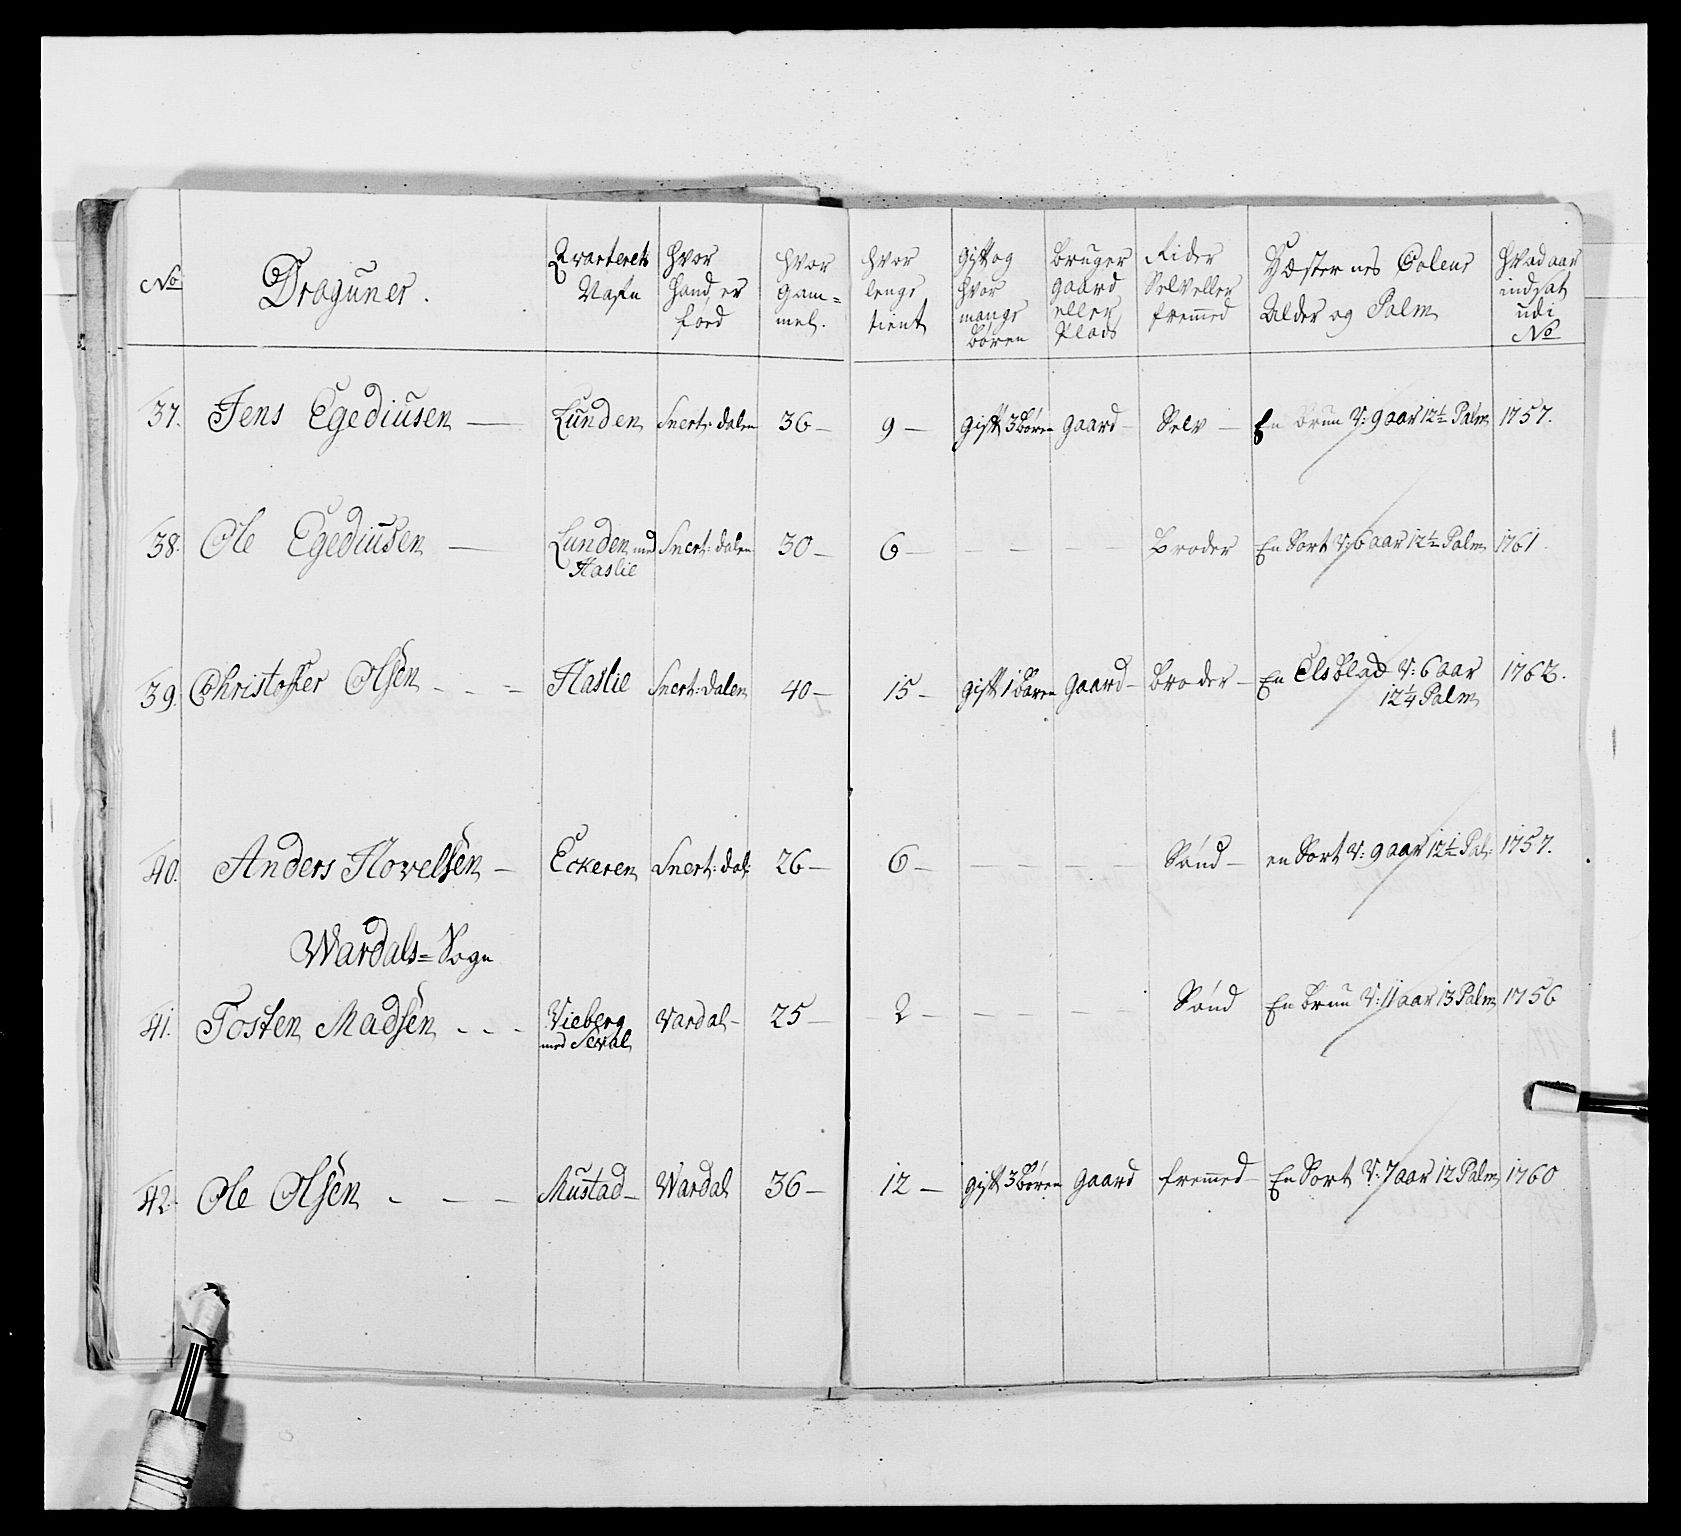 No Draguner. Qvarterets Nafn hvor hand er foed hvor gam= mel. hvor lenge tient gift og hvor mange Børen bruger gaard eller Plads Rider Selv eller fremed Hæsternes Coleur Alder og Palm hvad aar indsat udi No
37. Jens Egediusen — Lunden Snert: dalen 36 — 9 — gift 3 børen gaard — Selv — En brun V: 9 aar 12½ Palm 1757.
38. Ole Egediusen — Lunden med Snert: dalen 30 — 6 — — — Broder En Sort V: 6 aar 12½ Palm 1761.
Haslie
39. Christoffer Olsen - - = Haslie Snert: dalen 40 — 15 — gift 1 Børen gaard — broder — En Elsblad V: 6 aar 1762.
12¼ Palm
40. Anders Hovelsen — Eckeren Snert: dal: 26 — 6 — — — Sønd — en Sort V: 9 aar 12½ Pal: 1757.
Wardals = Sogn
41. Tosten Madsen - - - Vieberg Vardal — 25 — 2 — — — Sønd En brun V: 11 aar 13 Palm 1756
med Seval
42. Ole Olsen - — — Mustad — Wardal 36 — 12 — gift 3 Børen gaard fremed — En Sort V: 7 aar 12 Palm 1760